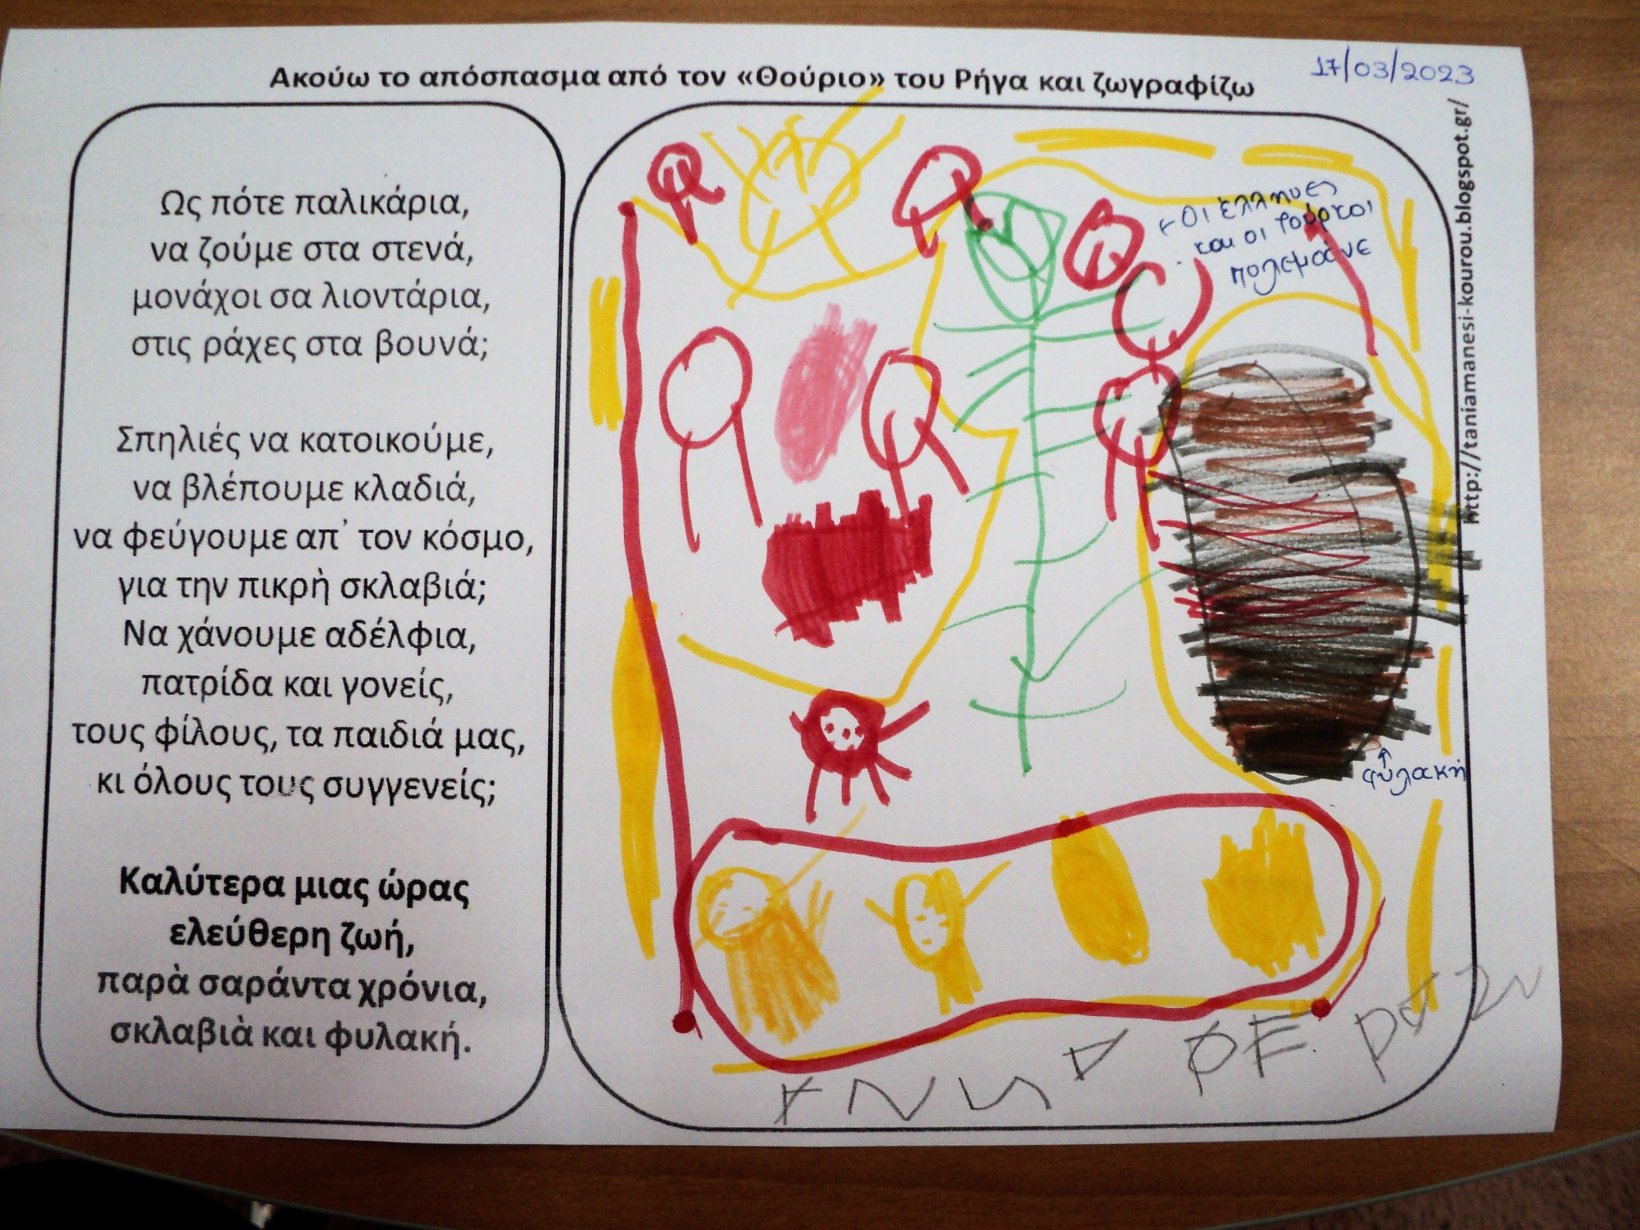 Ακούω το απόσπασμα από τον «Θούριο» του Ρήγα και ζωγραφίζω
17/03/2023
Ως πότε παλικάρια,
να ζούμε στα στενά,
μονάχοι σα λιοντάρια,
στις ράχες στα βουνά;
Σπηλιές να κατοικούμε,
να βλέπουμε κλαδιά,
να φεύγουμε απ᾽ τον κόσμο,
για την πικρὴ σκλαβιά;
Να χάνουμε αδέλφια,
πατρίδα και γονείς,
τους φίλους, τα παιδιά μας,
κι όλους τους συγγενείς;
Καλύτερα μιας ώρας
ελεύθερη ζωή,
παρὰ σαράντα χρόνια,
σκλαβιὰ και φυλακή.
- Οι έλληνες
και οι τούρκοι
πολεμάνε
φυλακή
http://taniamanesi-kourou.blogspot.gr/